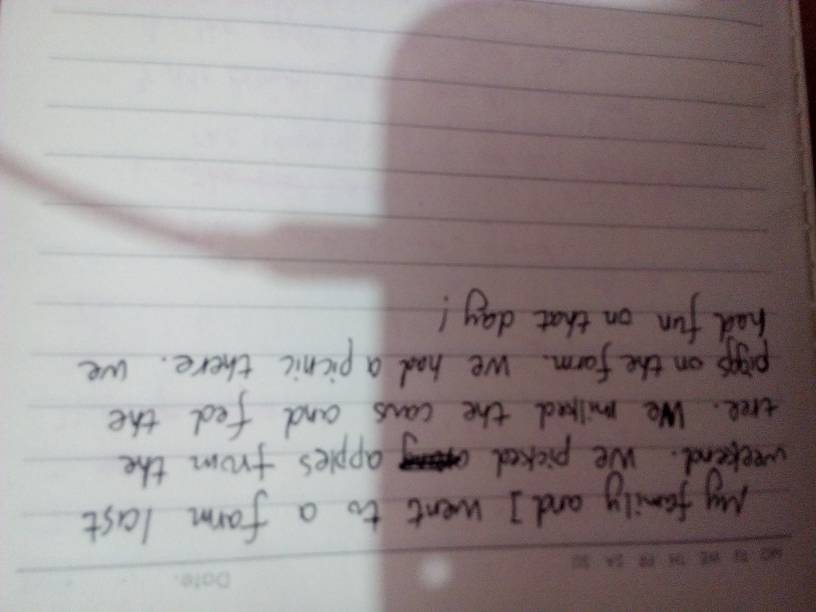 MO TU WE TH FR SA SU Date.
My family and I went to a farm last
weekend. We picked apples from the
tree. We milked the cows and fed the
piggs on the farm. We had a picnic there. We
had fun on that day!